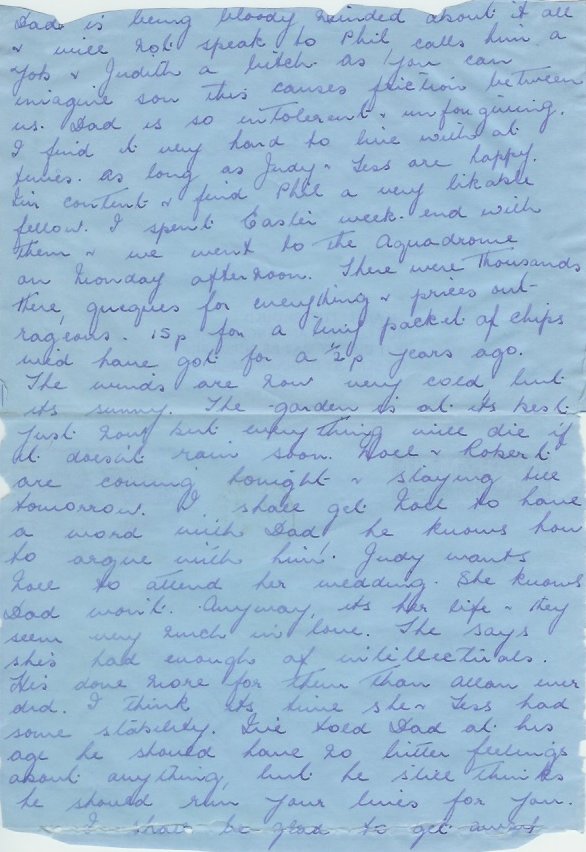 Dad is being bloody minded about it all
& will not speak to Phil calls him a
Yob & Judith a bitch as you can
imagine son this causes friction between
us. Dad is so intolerent & unforgiving.
I find it very hard to live with at
times. As long as Judy & Tess are happy.
I'm content & find Phil a very likable
fellow. I spent Easter week-end with
them & we went to the Aquadrome
on Monday afternoon. There were thousands
there, queques for everything & prices out-
rageous. 15p for a tiny packet of chips
we'd have got for a ½p years ago.
The winds are now very cold but
its sunny. The garden is at its best
just now but everything will die if
it doesnt rain soon. Noel & Robert
are coming tonight & staying till
tomorrow. I shall get Noel to have
a word with Dad he knows how
to argue with him. Judy wants
Noel to attend her wedding. She knows
Dad won't. Anyway, its her life & they
seem very much in love. She says
she's had enough of intillectuals.
He's done more for them than Allan ever
did. I think its time she & Tess had
some stability. I've told Dad at his
age he should have no bitter feelings
about anything, but he still thinks
he should run your lives for you.
I shall be glad to get away